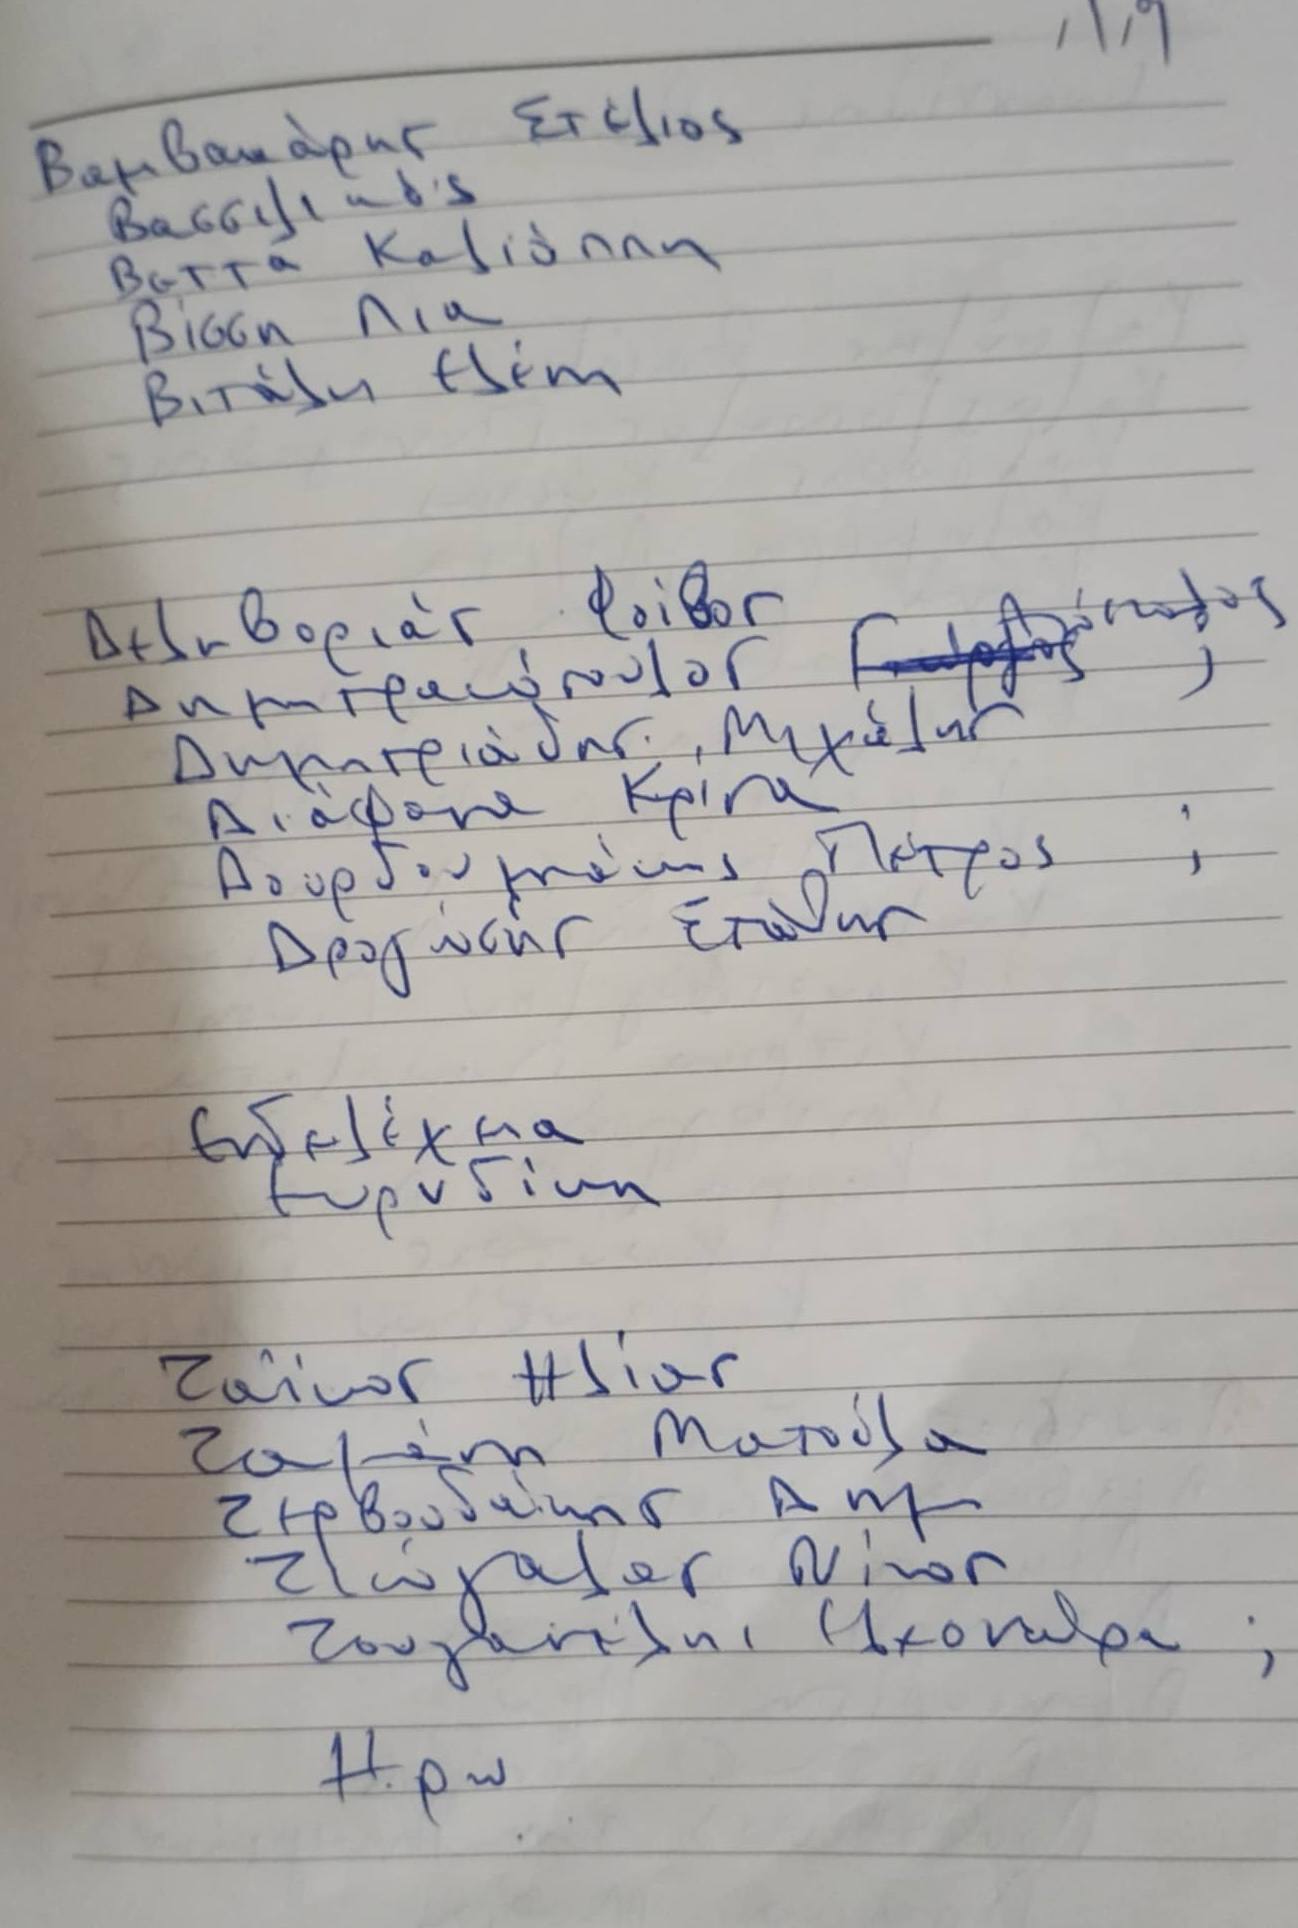 Βαμβακάρης Στέλιος
Βασσιλικός
Βέττα Καλιόπη
Βίσση Λία
Βιτάλη Ελένη
Δεληβοριάς Φοίβος
Δημητρακόπουλος ;
Δημητριάδης, Μιχάλης
Διάφανα Κρίνα
Δουρδουμπάκης Πέτρος ;
Δρογώσης Στάθης
Ενδελέχεια
Ευρυδίκη
Ζαΐκος Ηλίας
Ζαμάνη Ματούλα
Ζερβουδάκης Δημ
Ζιώγαλας Νίκος
Ζουγανέλη, Ελεονώρα ;
Ηρώ